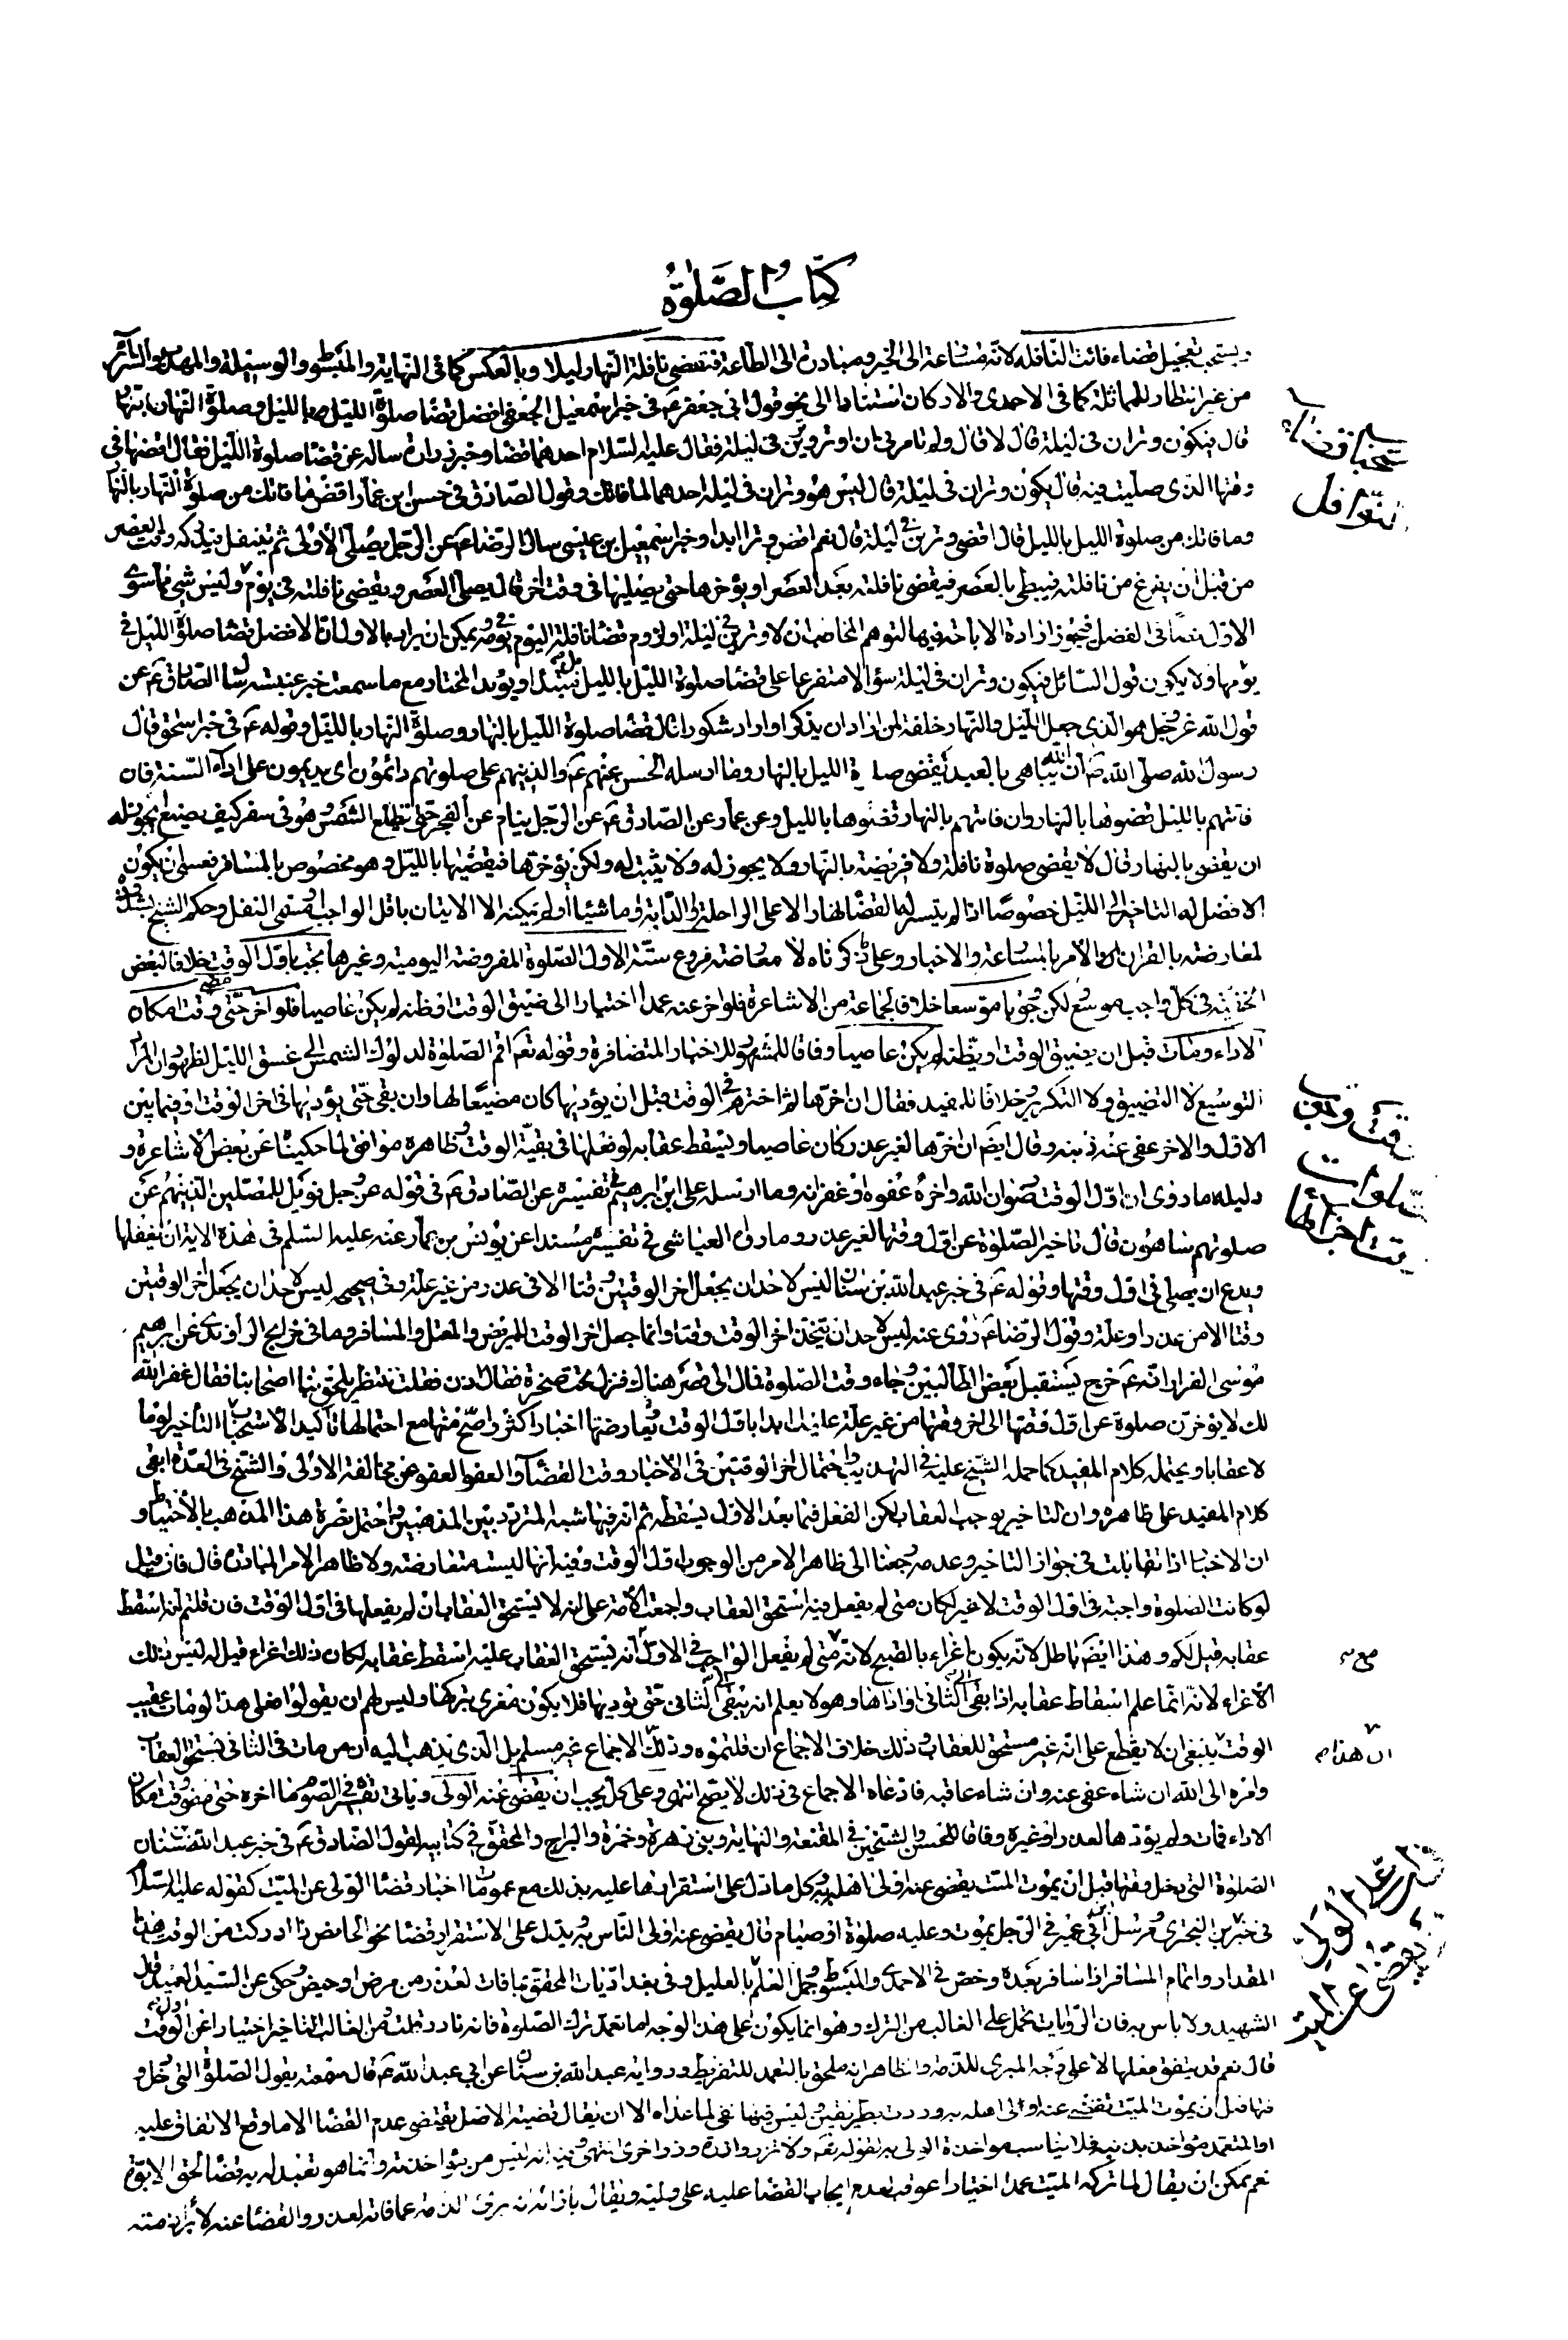 كتاب الصلوة
ويستحب تعجيل قضاء فائت النافلة لانه مسارعة الى الخير ومبادرة الى الطاعة فتقضى نافلة النهار ليلا وبالعكس كما في النهاية والمبسوط والوسيلة والمهذب والسرائر
من غير انتظار للمماثلة كما في الاحمدي والاركان استنادا الى نحو قول ابي جعفر ع في خبر اسمعيل الجعفي افضل قضاء صلوة الليل بالليل وصلوة النهار بالنهار
قال فيكون وتران في ليلة قال لا قال ولم تأمرني ان اوتر وترين في ليلة فقال عليه السلام احدهما قضاء وخبر زرارة ساله عن قضاء صلوة الليل فقال اقضها في
وقتها الذي صليت فيه قال يكون وتران في ليلة قال ليس هو وتران في ليلة احدهما لما فاتك وقول الصادق في خبر ابن عمار اقض ما فاتك من صلوة النهار بالنهار
وما فاتك من صلوة الليل بالليل قال اقضي وترين في ليلة قال نعم اقض وترا ابدا وخبر اسمعيل بن عيسى سال الرضا ع عن الرجل يصلي الأولى ثم يتنفل فيدركه وقت العصر
من قبل ان يفرغ من نافلته فيبطئ بالعصر فيقضي نافلته بعد العصر او يؤخرها حتى يصليها في وقت آخر قال يصلي العصر ويقضي نافلته في يوم آخر وليس شيء ما سوى
الاول نصا في الفضل فيجوز ارادة الاباحة فيها لتوهم المخاطب ان لا وترين في ليلة او لزوم قضاء نافلة اليوم في يومه ويمكن ان يراد بالاول ان الافضل قضاء صلوة الليل في
يومها ولا يكون قول السائل فيكون وتران في ليلة سؤالا متفرعا على قضاء صلوة الليل بالليل بل ابتداء ويؤيد المختار مع ما سمعت خبر عنبسة سأل الصادق ع عن
قول الله عز وجل هو الذي جعل الليل والنهار خلفة لمن اراد ان يذكر او اراد شكورا قال قضاء صلوة الليل بالنهار وصلوة النهار بالليل وقوله ع في خبر اسحق قال
رسول الله صلى الله ان الله يباهي بالعبد يقضي صلوة الليل بالنهار وما ارسله الحسن عنهم ع والذينهم على صلوتهم دائمون اي يديمون على اداء السنة فان
فاتتهم بالليل قضوها بالنهار وان فاتتهم بالنهار قضوها بالليل وعن عمار عن الصادق ع عن الرجل ينام عن الفجر حتى تطلع الشمس وهو في سفر كيف يصنع ايجوز له
ان يقضي بالنهار قال لا يقضي صلوة نافلة ولا فريضة بالنهار ولا يجوز له ولا يثبت له ولكن يؤخرها فيقضيها بالليل وهو مخصوص بالمسافر فعسى ان يكون
الافضل له التاخير الى الليل خصوصا اذا لم يتيسر له القضاء نهارا الا على الراحلة والدابة او ماشيا او لم يمكنه الا الاتيان باقل الواجب او مسمى النفل وحكم الشيخ بشذوذه
لمعارضته بالقران والأمر بالمسارعة والاخبار وعلى ما ذكرناه لا معارضة فروع ستة الاول الصلوة المفروضة اليومية وغيرها تجب باول الوقت خلافا لبعض
الحنفية في كل واجب موسع لكن وجوبا موسعا خلافا لجماعة من الاشاعرة فلو اخر عنه عمدا اختيارا الى ضيق الوقت او ظنه لم يكن عاصيا فلو اخر حتى مضى وقت امكان
الاداء ومات قبل ان يضيق الوقت او يظنه لم يكن عاصيا وفاقا للمشهور للاخبار المتضافرة وقوله تعم اقم الصلوة لدلوك الشمس الى غسق الليل لظهور ان المراد
التوسيع لا التضييق ولا التكرير خلافا للمفيد فقال ان اخرها ثم اخترم في الوقت قبل ان يؤديها كان مضيعا لها وان بقي حتى يؤديها في اخر الوقت او فيما بين
الاول والاخر عفي عنه ذنبه وقال ايضا ان اخرها لغير عذر كان عاصيا ويسقط عقابه لو فعلها في بقية الوقت وظاهره موافق لما حكيناه عن بعض الاشاعرة و
دليله ما روي ان اول الوقت رضوان الله واخره عفوه او غفرانه وما ارسله علي بن ابراهيم في تفسيره عن الصادق ع في قوله عز وجل فويل للمصلين الذينهم عن
صلوتهم ساهون قال تاخير الصلوة عن اول وقتها لغير عذر وما رواه العياشي في تفسيره مسندا عن يونس بن عمار عنه عليه السلم في هذه الاية ان يغفلها
ويدع ان يصلي في اول وقتها وقوله ع في خبر عبد الله بن سنان ليس لاحد ان يجعل اخر الوقتين وقتا الا في عذر من غير علة وفي صحيحه ليس لاحد ان يجعل اخر الوقتين
وقتا الا من عذر او علة وقول الرضا ع روي عنه ليس لاحد ان يتخذ اخر الوقت وقتا وانما جعل اخر الوقت للمريض والمعتل والمسافر وما في خرايج الراوندي عن ابرهيم
موسى القزاز انه ع خرج يستقبل بعض الطالبيين وجاء وقت الصلوة فمال الى قصر هناك فنزل تحت صخرة فقال اذن فقلت ننتظر يلحق بنا اصحابنا فقال غفر الله
لك لا يؤخرن صلوة عن اول وقتها الى اخر وقتها من غير علة عليك ابدا باول الوقت وتعارضها اخبار اكثر واصح منها مع احتمالها تأكيد الاستحباب التأخير لوما
لا عقابا ويحتمله كلام المفيد كما حمله الشيخ عليه في التهذيب واحتمال اخر الوقتين في الاخبار وقت القضاء والعفو العفو عن مخالفة الاولى والشيخ في العدة ابقى
كلام المفيد على ظاهره وان التاخير يوجب العقاب لكن الفعل فيما بعد الاول يسقطه ثم انه فيها شبه المتردد بين المذهبين واحتمل نصرة هذا المذهب بالاحتياط و
ان الاخبار اذا تقابلت في جواز التاخير وعدمه رجعنا الى ظاهر الامر من الوجوب اول الوقت وفيه انها ليست متعارضة ولا ظاهر الامر المبادرة قال فان قيل
لو كانت الصلوة واجبة في اول الوقت لا غير لكان متى لم يفعل فيه استحق العقاب واجمعت الامة على انه لا يستحق العقاب ان لم يفعلها في اول الوقت فان قلتم انه اسقط
عقابه قيل لكم وهذا ايضا باطل لانه يكون اغراء بالقبيح لانه متى لم يفعل الواجب في الاول انه يستحق العقاب عليه اسقط عقابه لكان ذلك اغراء قيل له ليس ذلك
لأغراء لانه انما علم اسقاط عقابه اذا بقي الى الثاني واداها وهو لا يعلم انه يبقى الى الثاني حتى يؤديها فلا يكون مغرى بتركها وليس لهم ان يقولوا فعلى هذا لو مات عقيب
الوقت ينبغي ان لا يقطع على انه غير مستحق للعقاب وذلك خلاف الاجماع ان قلتموه وذلك الاجماع غير مسلم بل الذي نذهب اليه ان من مات في الثاني مستحق العقاب
وامره الى الله ان شاء عفى عنه وان شاء عاقبه فادعاء الاجماع في ذلك لا يصح انتهى وعلى كل يجب ان يقضي عنه الولي وياتي تفسيره في الصوم ما اخره حتى مضى وقت امكان
الاداء فمات ولم يؤدها لعذر او غيره وفاقا للحسن والشيخين في المقنعة والنهاية وبني زهرة وحمزة والبراج والمحقق في كتابيه لقول الصادق ع في خبر عبد الله بن سنان
الصلوة التي دخل وقتها قبل ان يموت الميت يقضي عنه اولى اهله به وكل ما دل على استقرارها عليه بذلك مع عمومات اخبار قضاء الولي عن الميت كقوله عليه السلام
في خبر ابن البختري ومرسل ابن ابي عمير في الرجل يموت وعليه صلوة او صيام قال يقضي عنه اولى الناس به ويدل على الاستقرار قضاء نحو الحائض اذا ادركت من الوقت هذا
المقدار واتمام المسافر اذا سافر بعده وخص في الاحمدي والمبسوط وجمل العلم بالعليل وفي بغداديات المحقق بما فات لعذر من مرض او حيض وحكى عن السيد العميد قال
الشهيد ولا باس به فان الروايات تحمل على الغالب من الترك وهو انما يكون على هذا الوجه اما تعمد ترك الصلوة فانه نادر قلت ومن الغالب التاخير اختيارا عن اول الوقت
قال نعم قد يتفق فعلها لا على الوجه المبرئ للذمة والظاهر انه ملحق بالتعمد للتفريط ورواية عبد الله بن سنان عن ابي عبد الله ع قال سمعته يقول الصلوة التي دخل و
قتها قبل ان يموت الميت يقضي عنه اولى اهله به وردت بطريقين وليس فيها نفي لما عداه الا ان يقال قضية الاصل يقتضي عدم القضاء الا ما وقع الاتفاق عليه
او المتعمد مؤاخذ بذنبه فلا يناسب مؤاخذة الولي به لقوله تعم ولا تزر وازرة وزر اخرى انتهى وفيه انه ليس من مؤاخذته وانما هو تعبد له به قضاء لحق الابوة
نعم يمكن ان يقال لما تركه الميت عمدا اختيارا عوقب بعدم ايجاب القضاء عليه على وليه ويقال بازائه انه برئ الذمة عما فاته لعذر والقضاء عنه لابراء ذمته
النوافل
مع م
ان هذا م
يقضى عن الميت